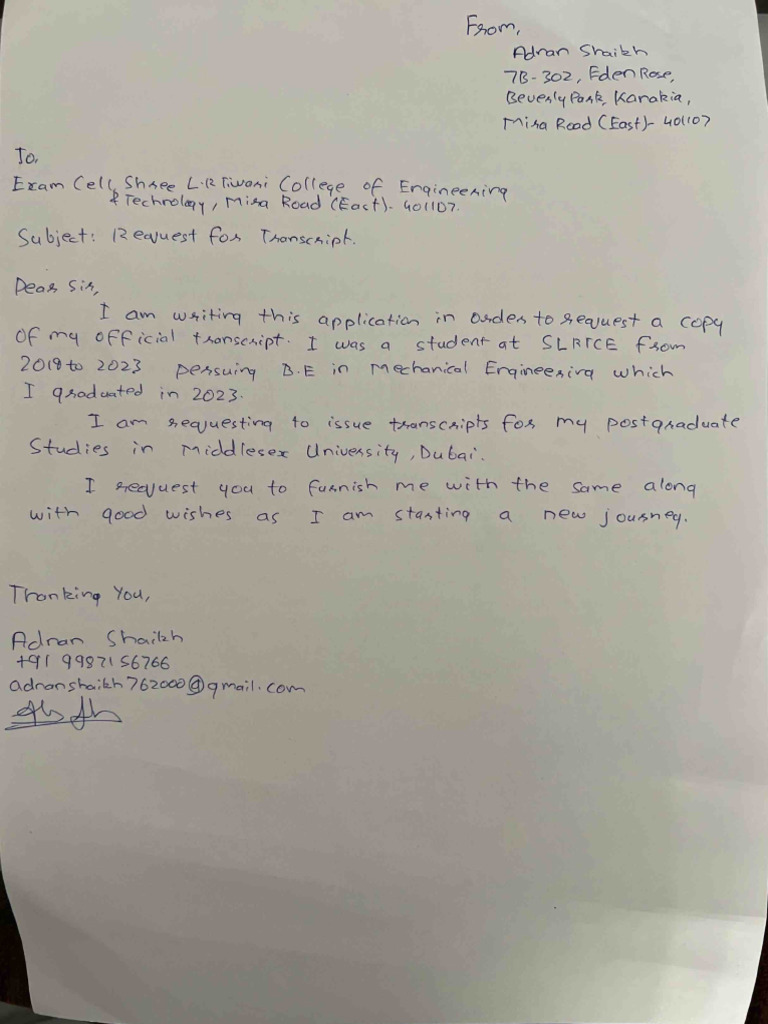 From,
Adnan Shaikh
7B-302, Eden Rose,
Beverly Park, Kanakia,
Mira Road (East)- 401107
To,
Exam Cell, Shree L.R Tiwari College of Engineering
& Technology, Mira Road (East)- 401107.
Subject: Request for Transcript.
Dear Sir,
I am writing this application in order to request a copy
of my official transcript. I was a student at SLRTCE from
2019 to 2023 persuing B.E in Mechanical Engineering which
I graduated in 2023.
I am requesting to issue transcripts for my postgraduate
Studies in Middlesex University, Dubai.
I request you to furnish me with the same along
with good wishes as I am starting a new journey.
Thanking You,
Adnan Shaikh
+91 9987156766
adnanshaikh762000@gmail.com